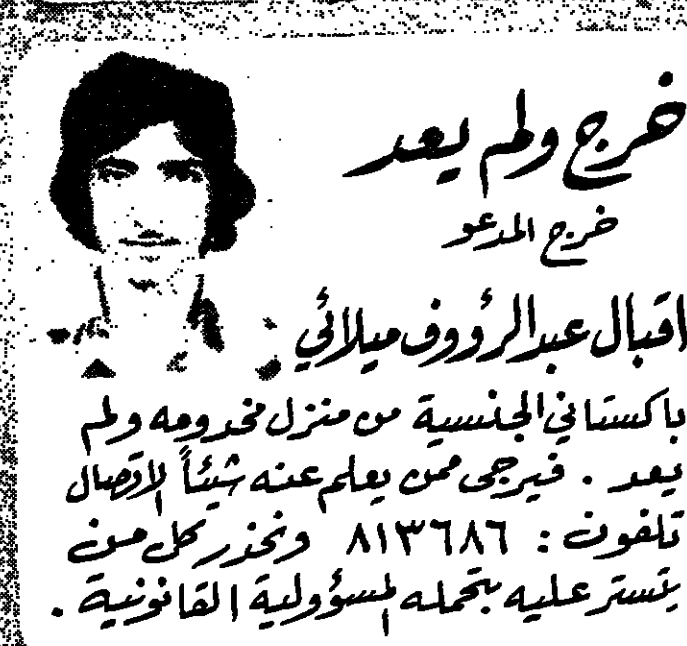 خرج ولم يعد
خرج المدعو
اقبال عبدالرؤوف ميلائي
باكستاني الجنسية من منزل مخدومه ولم
يعد . فيرجى ممن يعلم عنه شيئاً الاتصال
تلفون : ٨١٣٦٨٦ ونحذر كل من
يتستر عليه بتحمله المسؤولية القانونية .